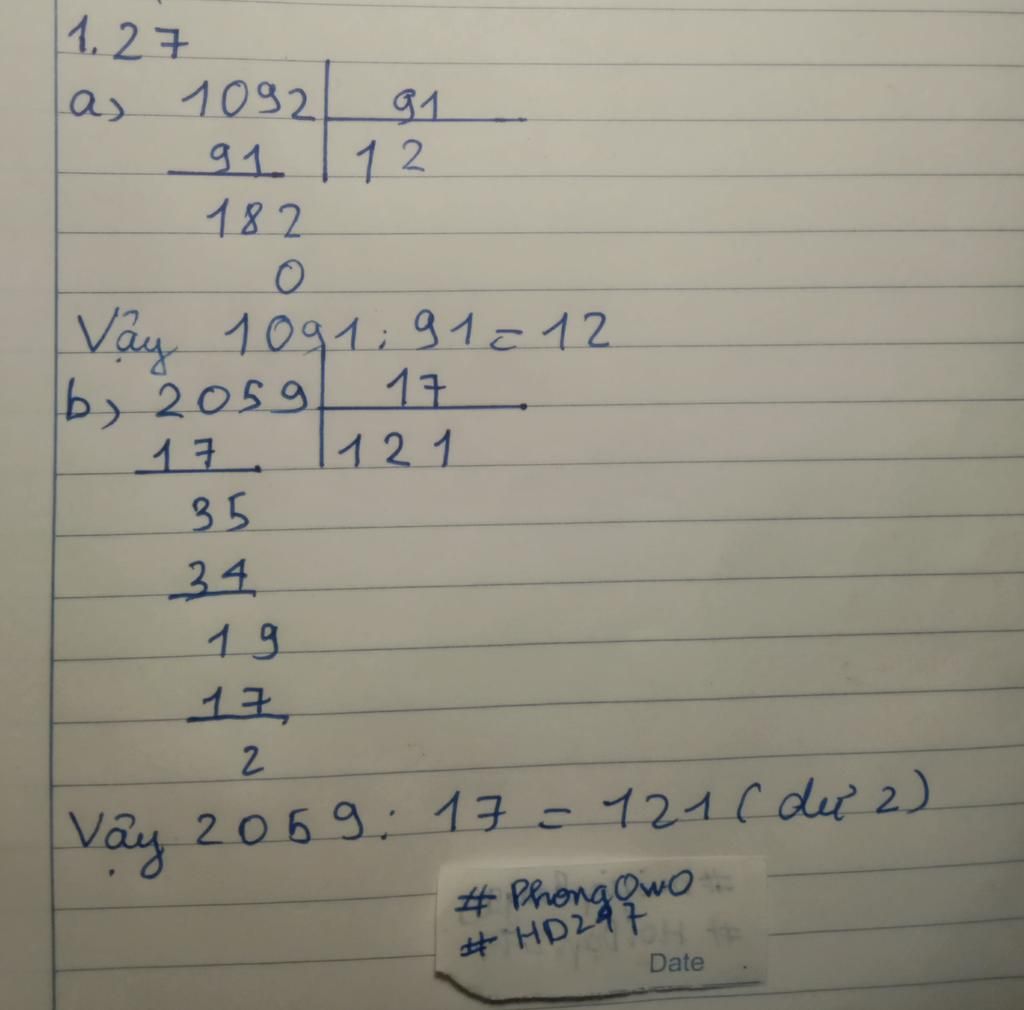 1.27
a) 1092 91
91 12
182
0
Vậy 1091 : 91 = 12
b) 2059 17
17 121
35
34
19
17
2
Vậy 2059 : 17 = 121 ( dư 2)
# PhongOwO
# HD297
Date